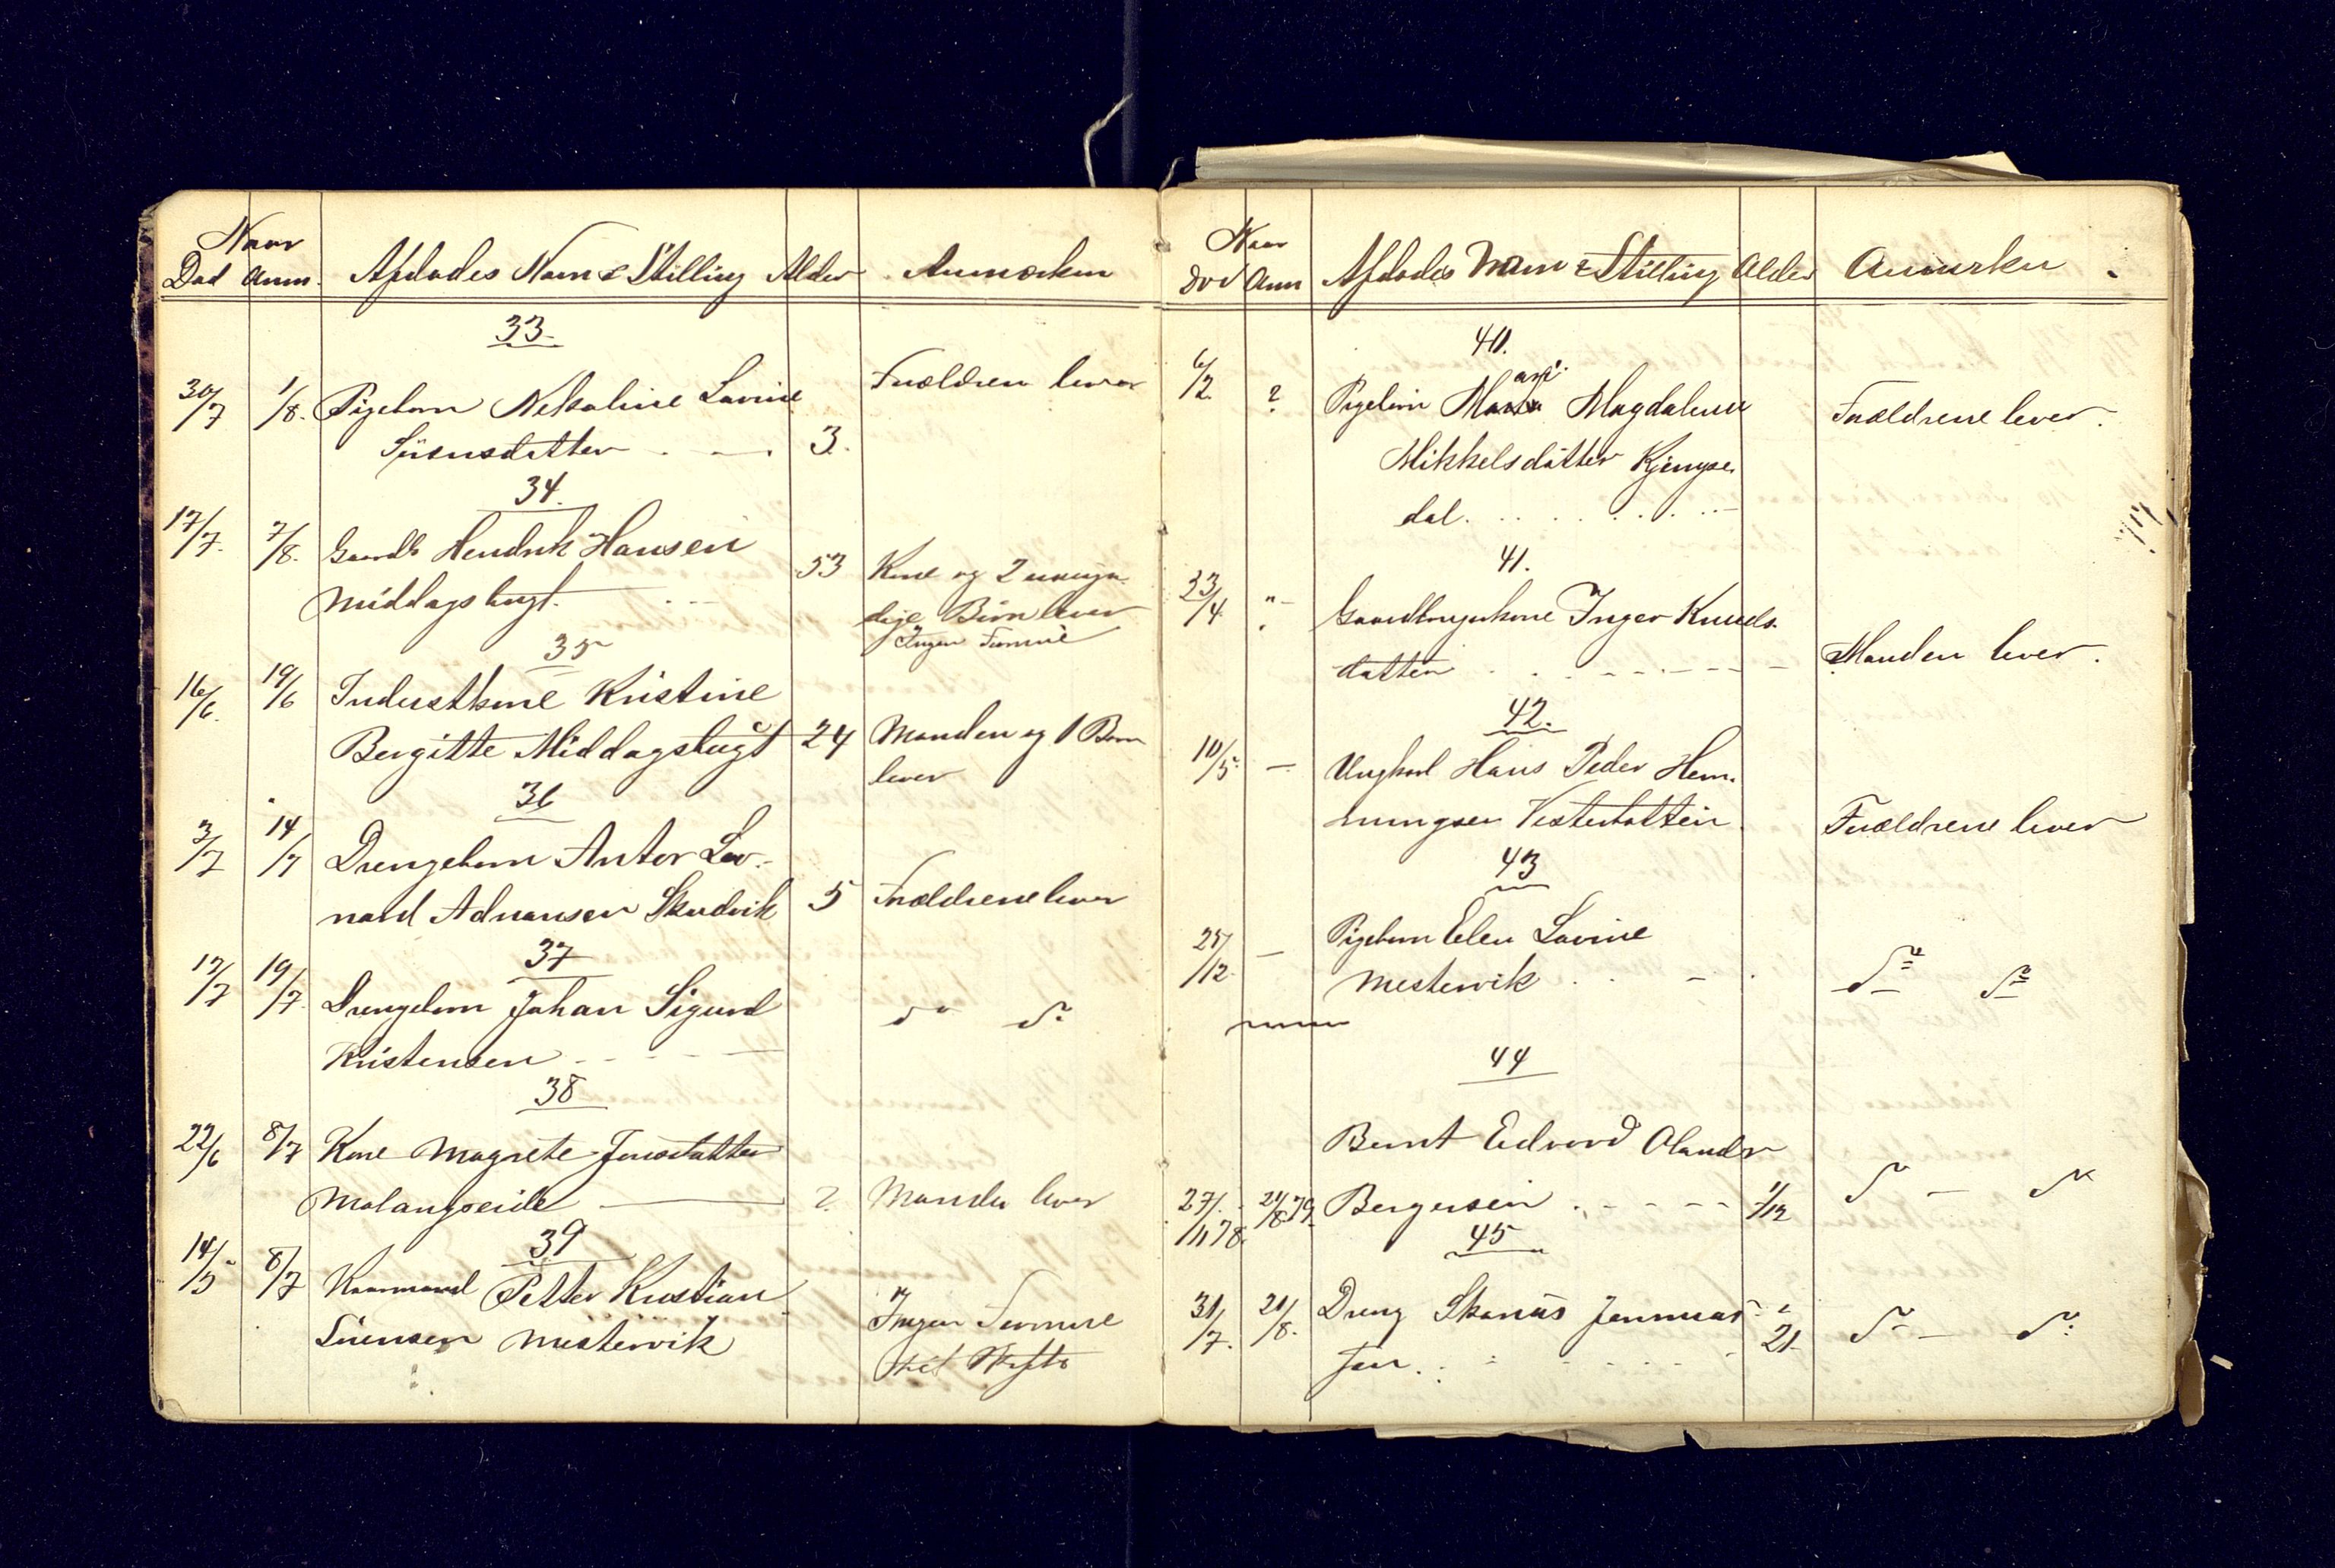 Naar
Død Anm. Afdødes Navn & Stilling Alder Anmærkn
33.
30/7 1/8. Pigebarn Nikoline Lovise Forældren lever
Sørensdatter 3.
34.
17/7. 7/8. Gaardb Hendrik Hansen 53 Kone og 2 umyn-
Middagsbugt. dige Børn lever
Ingen Formue
35
16/6. 19/6 Inderstkone Kristine
Bergitte Middagsbugt 24 Manden og 1 Barn
lever
36
3/7 14/7 Drengebarn Anton Leo-
nard Adriansen Skudvik 5 Forældrene lever
37
17/7 19/7. Drengebarn Johan Sigurd do do
Kristensen
38
22/6 8/7 Kone Magrete Jensdatter
Malangseide ? Manden lever
39
14/5 8/7 Kaarmand Petter Kristian Ingen Formue
Sørensen Mestervik
Naar
Død Anm Afdødes Navn & Stilling Alder Anmærkn.
40.
6/2. ? Pigebarn Mari Magdalena Forældrene lever.
Mikkelsdatter Kjengse
dal.
41.
23/4. " Gaardbrugerkone Inger Knuds-
datter Manden lever.
42.
10/5. - Ungkarl Hans Peder Hem-
mingsen Forældrene lever
43
25/12. - Pigebarn Elen Lovise
Mestervik do do
44
Bernt Edvard Olands
27/11 78. 21/8 79. Bergersen 1/12 do - do
45
31/7. 21/8. Dreng Skonus Jenmias- 21. do - do
sen.